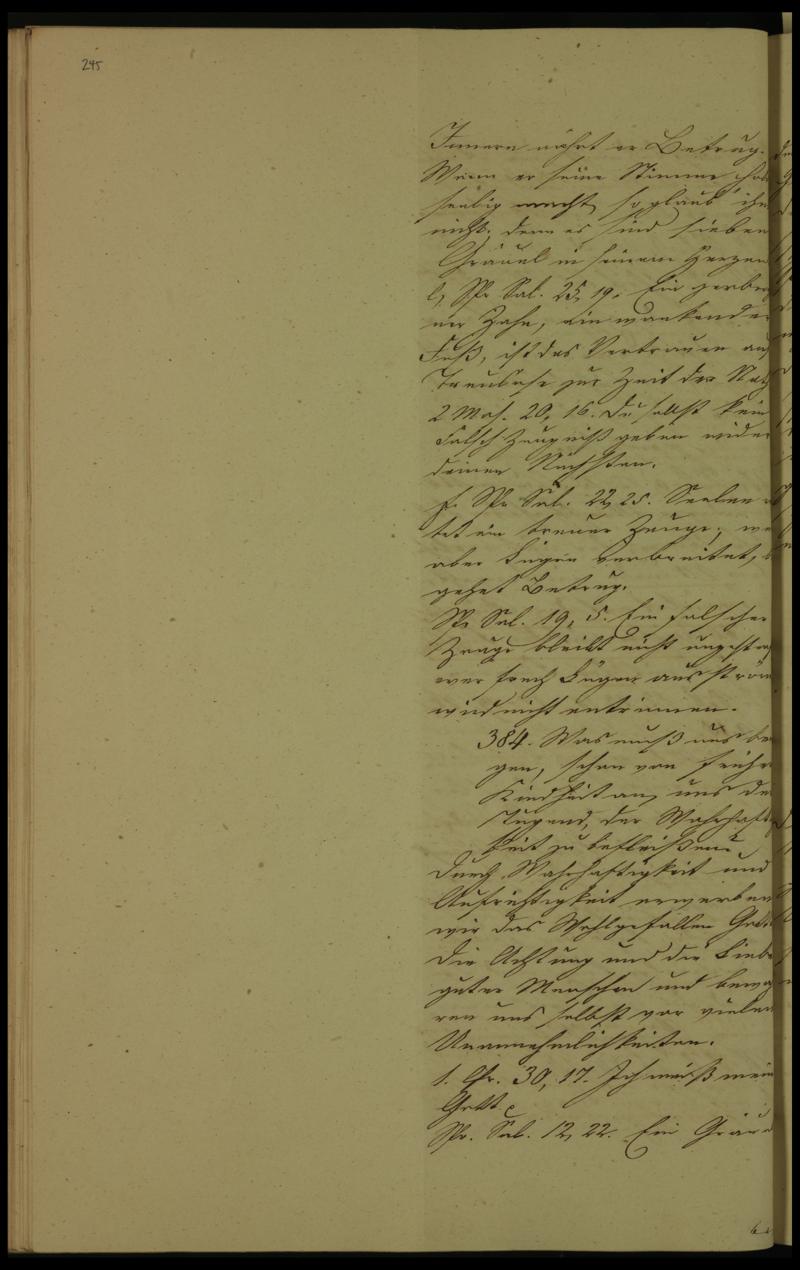 245
Innern nährt er Betrug.
Wenn er seine Stimme hol
selig macht, so glaub' ihm
nicht; denn es sind sieben
Gräuel in seinem Herzen
Spr. Sal. 25, 19. Ein zerbro
ner Zahn, ein wankender
Fuß, ist das Vertrauen auf
Treulose zur Zeit der Noth
2 Mos. 20, 16. Du sollst kein
falsch Zeugniß geben wider
deinen Nächsten.
f. Spr. Sal. 25. Seelen
tet ein treuer Zeuge; we
aber Lügen verbreitet, b
gehet Betrug.
Spr. Sal. 19, 5. Ein falscher
Zeuge bleibt nicht ungestraf
wer frech Lügen ausströmt
wird nicht entrinnen.
384. Was muß uns be
gen, schon von früher
Kindheit an, uns der
Tugend, der Wahrhaftig
keit zu befleißen?
Durch Wahrhaftigkeit und
Aufrichtigkeit erwerben
wir das Wohlgefallen Got
die Achtung und die Liebe
guter Menschen und bewah
ren uns selbst vor vielen
Unannehmlichkeiten.
1. Chr. 30, 17. Ich weiß mein
Gott
Spr. Sal. 12, 22. Ein Gräue